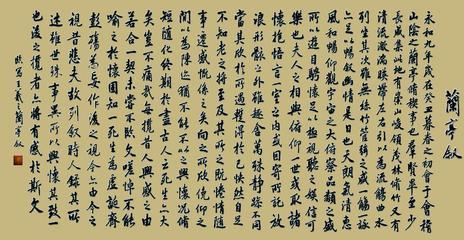 蘭亭叙
永和九年歲在癸丑暮春之初會于會稽
山陰之蘭亭脩稧事也群賢畢至少
長咸集此地有崇山峻領茂林脩竹又有
清流激湍暎帶左右引以為流觴曲水
列坐其次雖無絲竹管絃之盛一觴一詠
亦足以暢叙幽情是日也天朗氣清惠
風和暢仰觀宇宙之大俯察品類之盛
所以遊目騁懷足以極視聽之娛信可
樂也夫人之相與俯仰一世或取諸
懷抱悟言一室之內或因寄所託放
浪形骸之外雖趣舍萬殊靜躁不同
當其欣於所遇暫得於己快然自足
不知老之將至及其所之既惓情隨
事遷感慨係之矣向之所欣俛仰之
間以為陳迹猶不能不以之興懷況脩
短隨化終期於盡古人云死生亦大
矣豈不痛哉每攬昔人興感之由
若合一契未嘗不臨文嗟悼不能
喻之於懷固知一死生為虛誕齊
彭殤為妄作後之視今亦由今之
視昔悲夫故列叙時人錄其所
述雖世殊事異所以興懷其致一
也後之攬者亦將有感於斯文
寫王羲之蘭亭叙